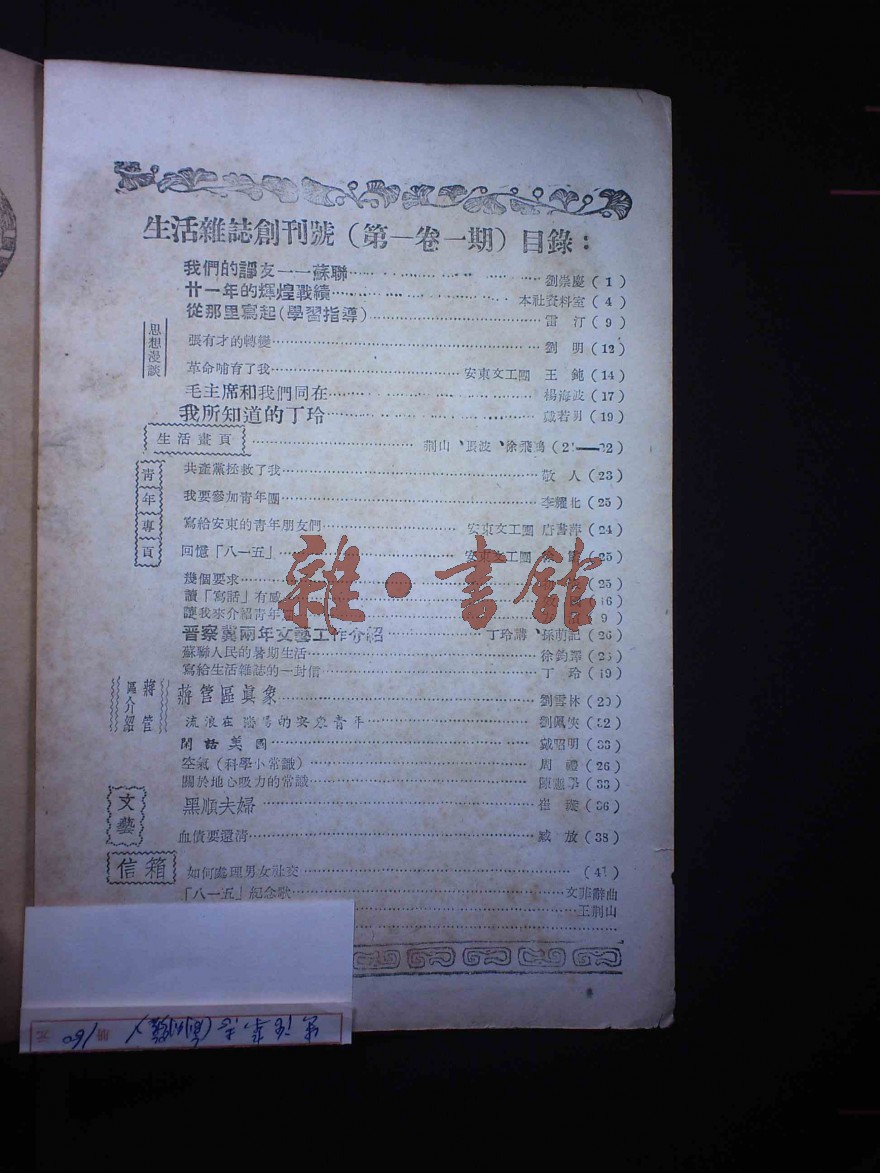 生活雜誌創刊號（第一卷一期）目錄：
我們的諍友——蘇聯 劉崇慶（1）
廿一年的輝煌戰績 本社資料室（4）
從那里寫起(學習指導) 雷 汀（9）
思想漫談
張有才的轉變 劉 明（12）
革命哺育了我 安東文工團 王 鈍（14）
毛主席和我們同在 楊海波（17）
我所知道的丁玲 戴若男（19）
生活畫頁 荆山、張波、徐飛鴻
青年專頁
共產黨拯救了我 敬 人（23）
我要參加青年團 李耀北（25）
寫給安東的青年朋友們 安東文工團 唐書萍（24）
回憶「八一五」 安東文工團（25）
幾個要求（25）
讀「寫話」有感
讓我來介紹青年
晋察冀兩年文藝工作介紹 丁玲講、孫萌記（26）
蘇聯人民的暑期生活 徐鈞澤
寫給生活雜誌的一封信 丁 玲
蔣管區介紹
蔣管區眞象 劉雪林
流浪在瀋陽的安東青年 劉佩俠（32）
閒話美國 戴昭明（33）
空氣（科學小常識） 周 禮（26）
關於地心吸力的常識（33）
文藝
黑順夫婦 崔 璇（36）
血債要還清 臧 放（38）
信箱
如何處理男女社交（41）
「八一五」紀念歌 文菲辭曲
王荆山
雜·書館
生活杂志(創刊號)
期 160 元